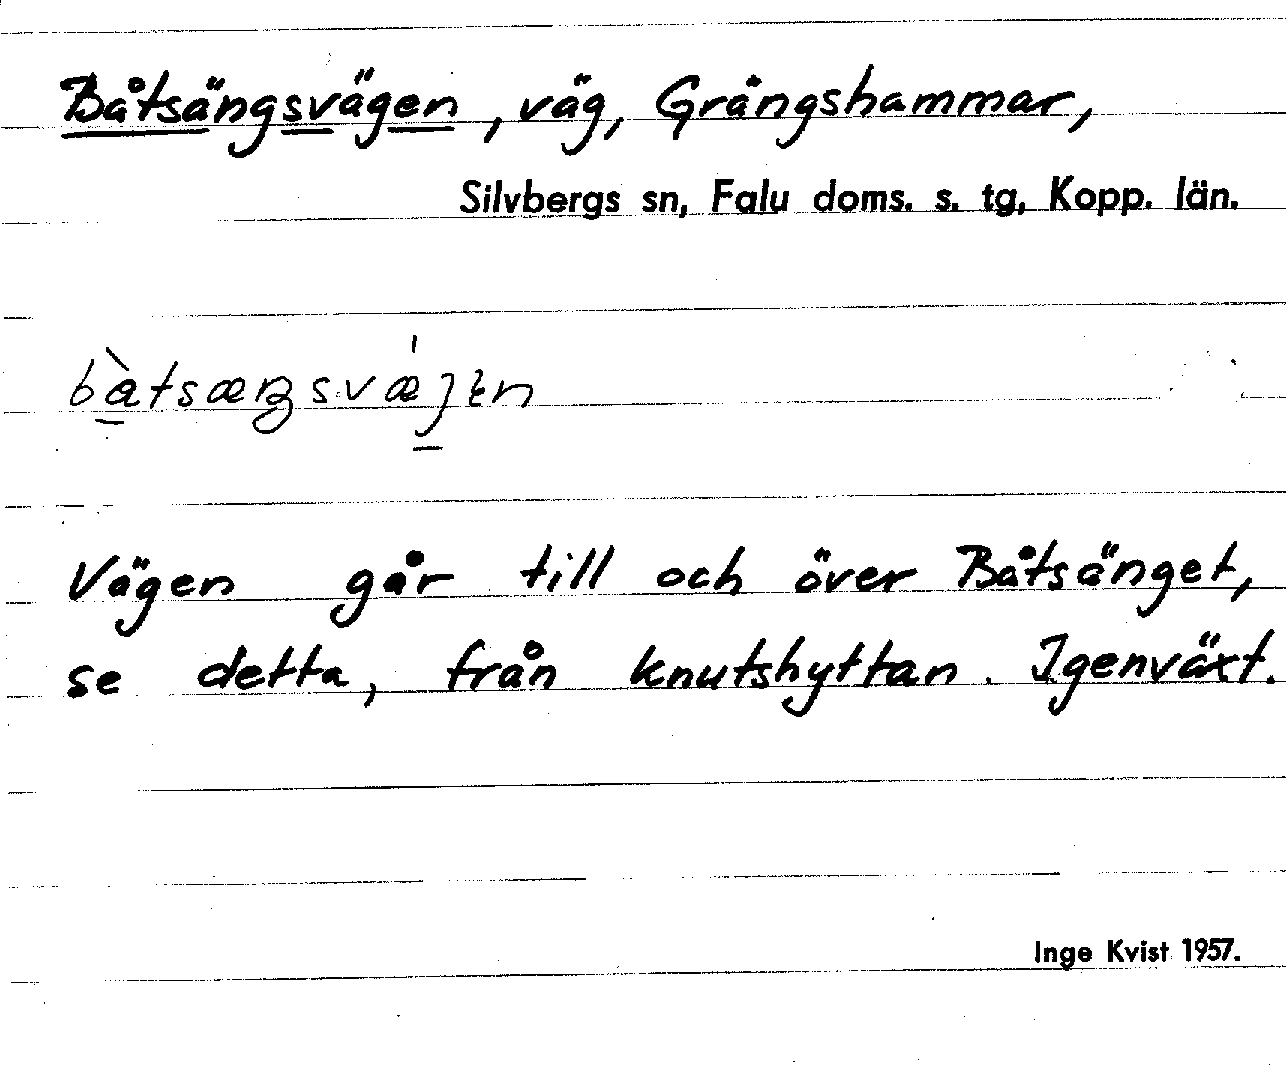 Båtsängsvägen, väg, Grängshammar,
Silvbergs sn, Falu doms. s. tg, Kopp. län.
Vägen går till och över Båtsänget,
se detta, från knutshyttan. Igenväxt.
Inge Kvist 1957.